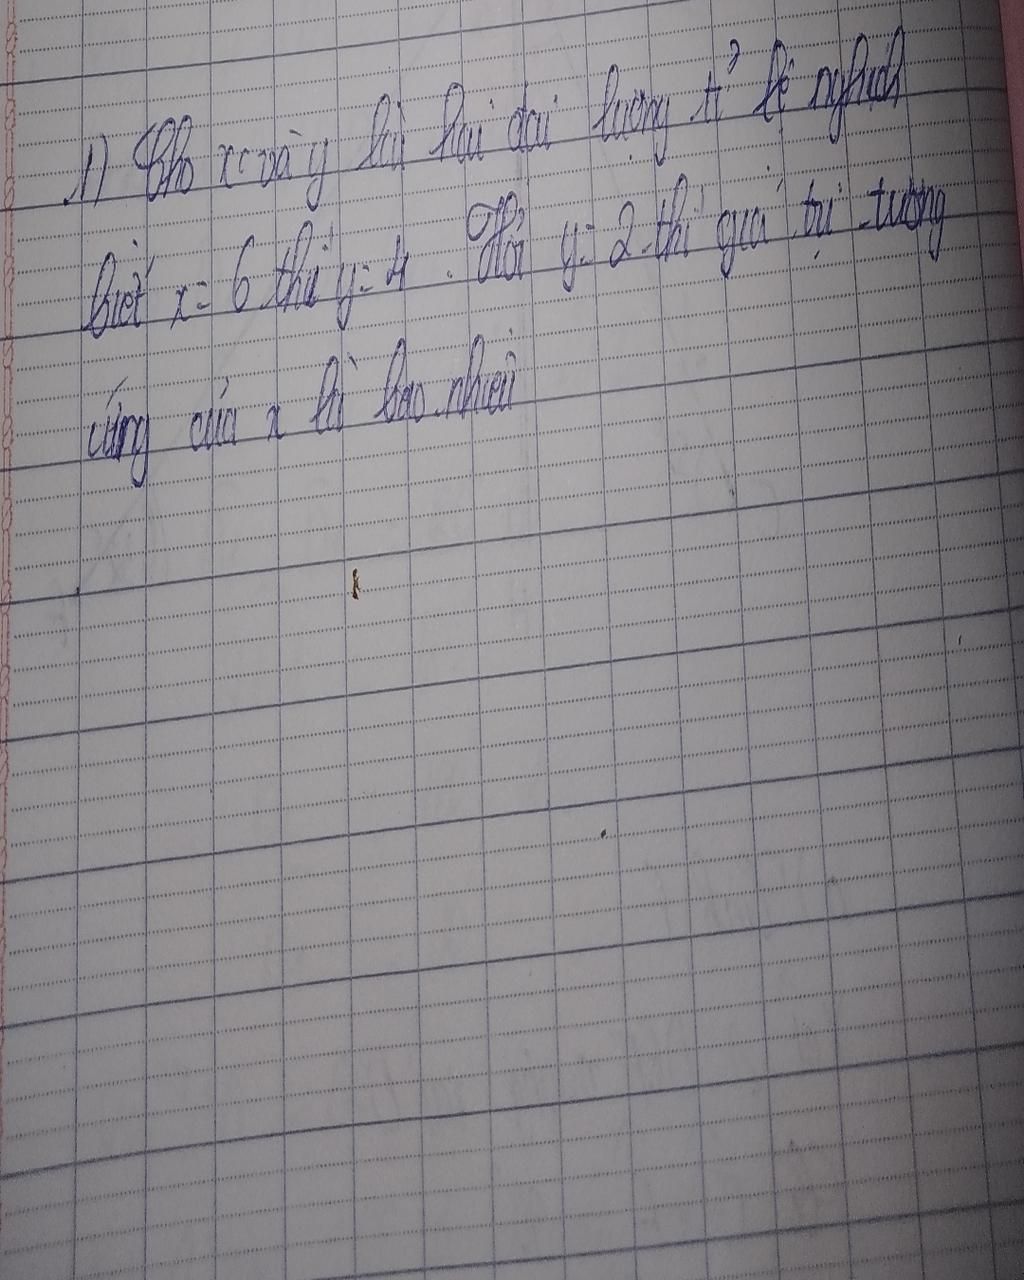 1) Cho x và y là hai đại lượng tỉ lệ nghịch
biết x = 6 thì y = 4 . Hỏi y = 2 thì giá trị tương
ứng của x là bao nhiêu